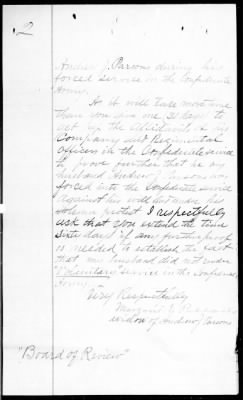 2
Andrew J. Parsons during his
forced service in the Confederate
Army.
As it will take more time
than you give me 31 days to
get up the affidavits of his
Company and Regimental
officers in the Confederate Service
to prove further that he my
husband Andrew J. Parsons was
forced into the Confederate service
against his will and under his
solemn protest I respectfully
ask that you extend the time
sixty days if any further proof
is needed to establish the fact
that my husband did not render
"Voluntary" service in the Confederate
Army.
Very Respectfully
Margaret E. Parsons
widow of Andrew J. Parsons
"Board of Review"